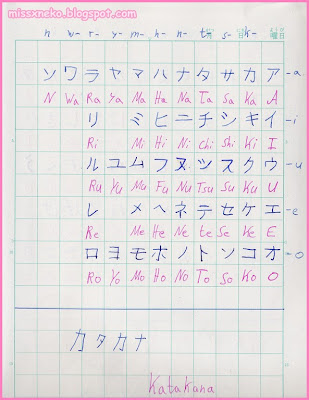 missxneko.blogspot.com
n w- r- y- m- h- n- t- s- k-
ン ワ ラ ヤ マ ハ ナ タ サ カ ア -a
N Wa Ra Ya Ma Ha Na Ta Sa Ka A
リ ミ ヒ ニ チ シ キ イ -i
Ri Mi Hi Ni Chi Shi Ki I
ル ユ ム フ ヌ ツ ス ク ウ -u
Ru Yu Mu Fu Nu Tsu Su Ku U
レ メ ヘ ネ テ セ ケ エ -e
Re Me He Ne te Se Ke E
ロ ヨ モ ホ ノ ト ソ コ オ -o
Ro Yo Mo Ho No To So Ko O
カタカナ
Katakana